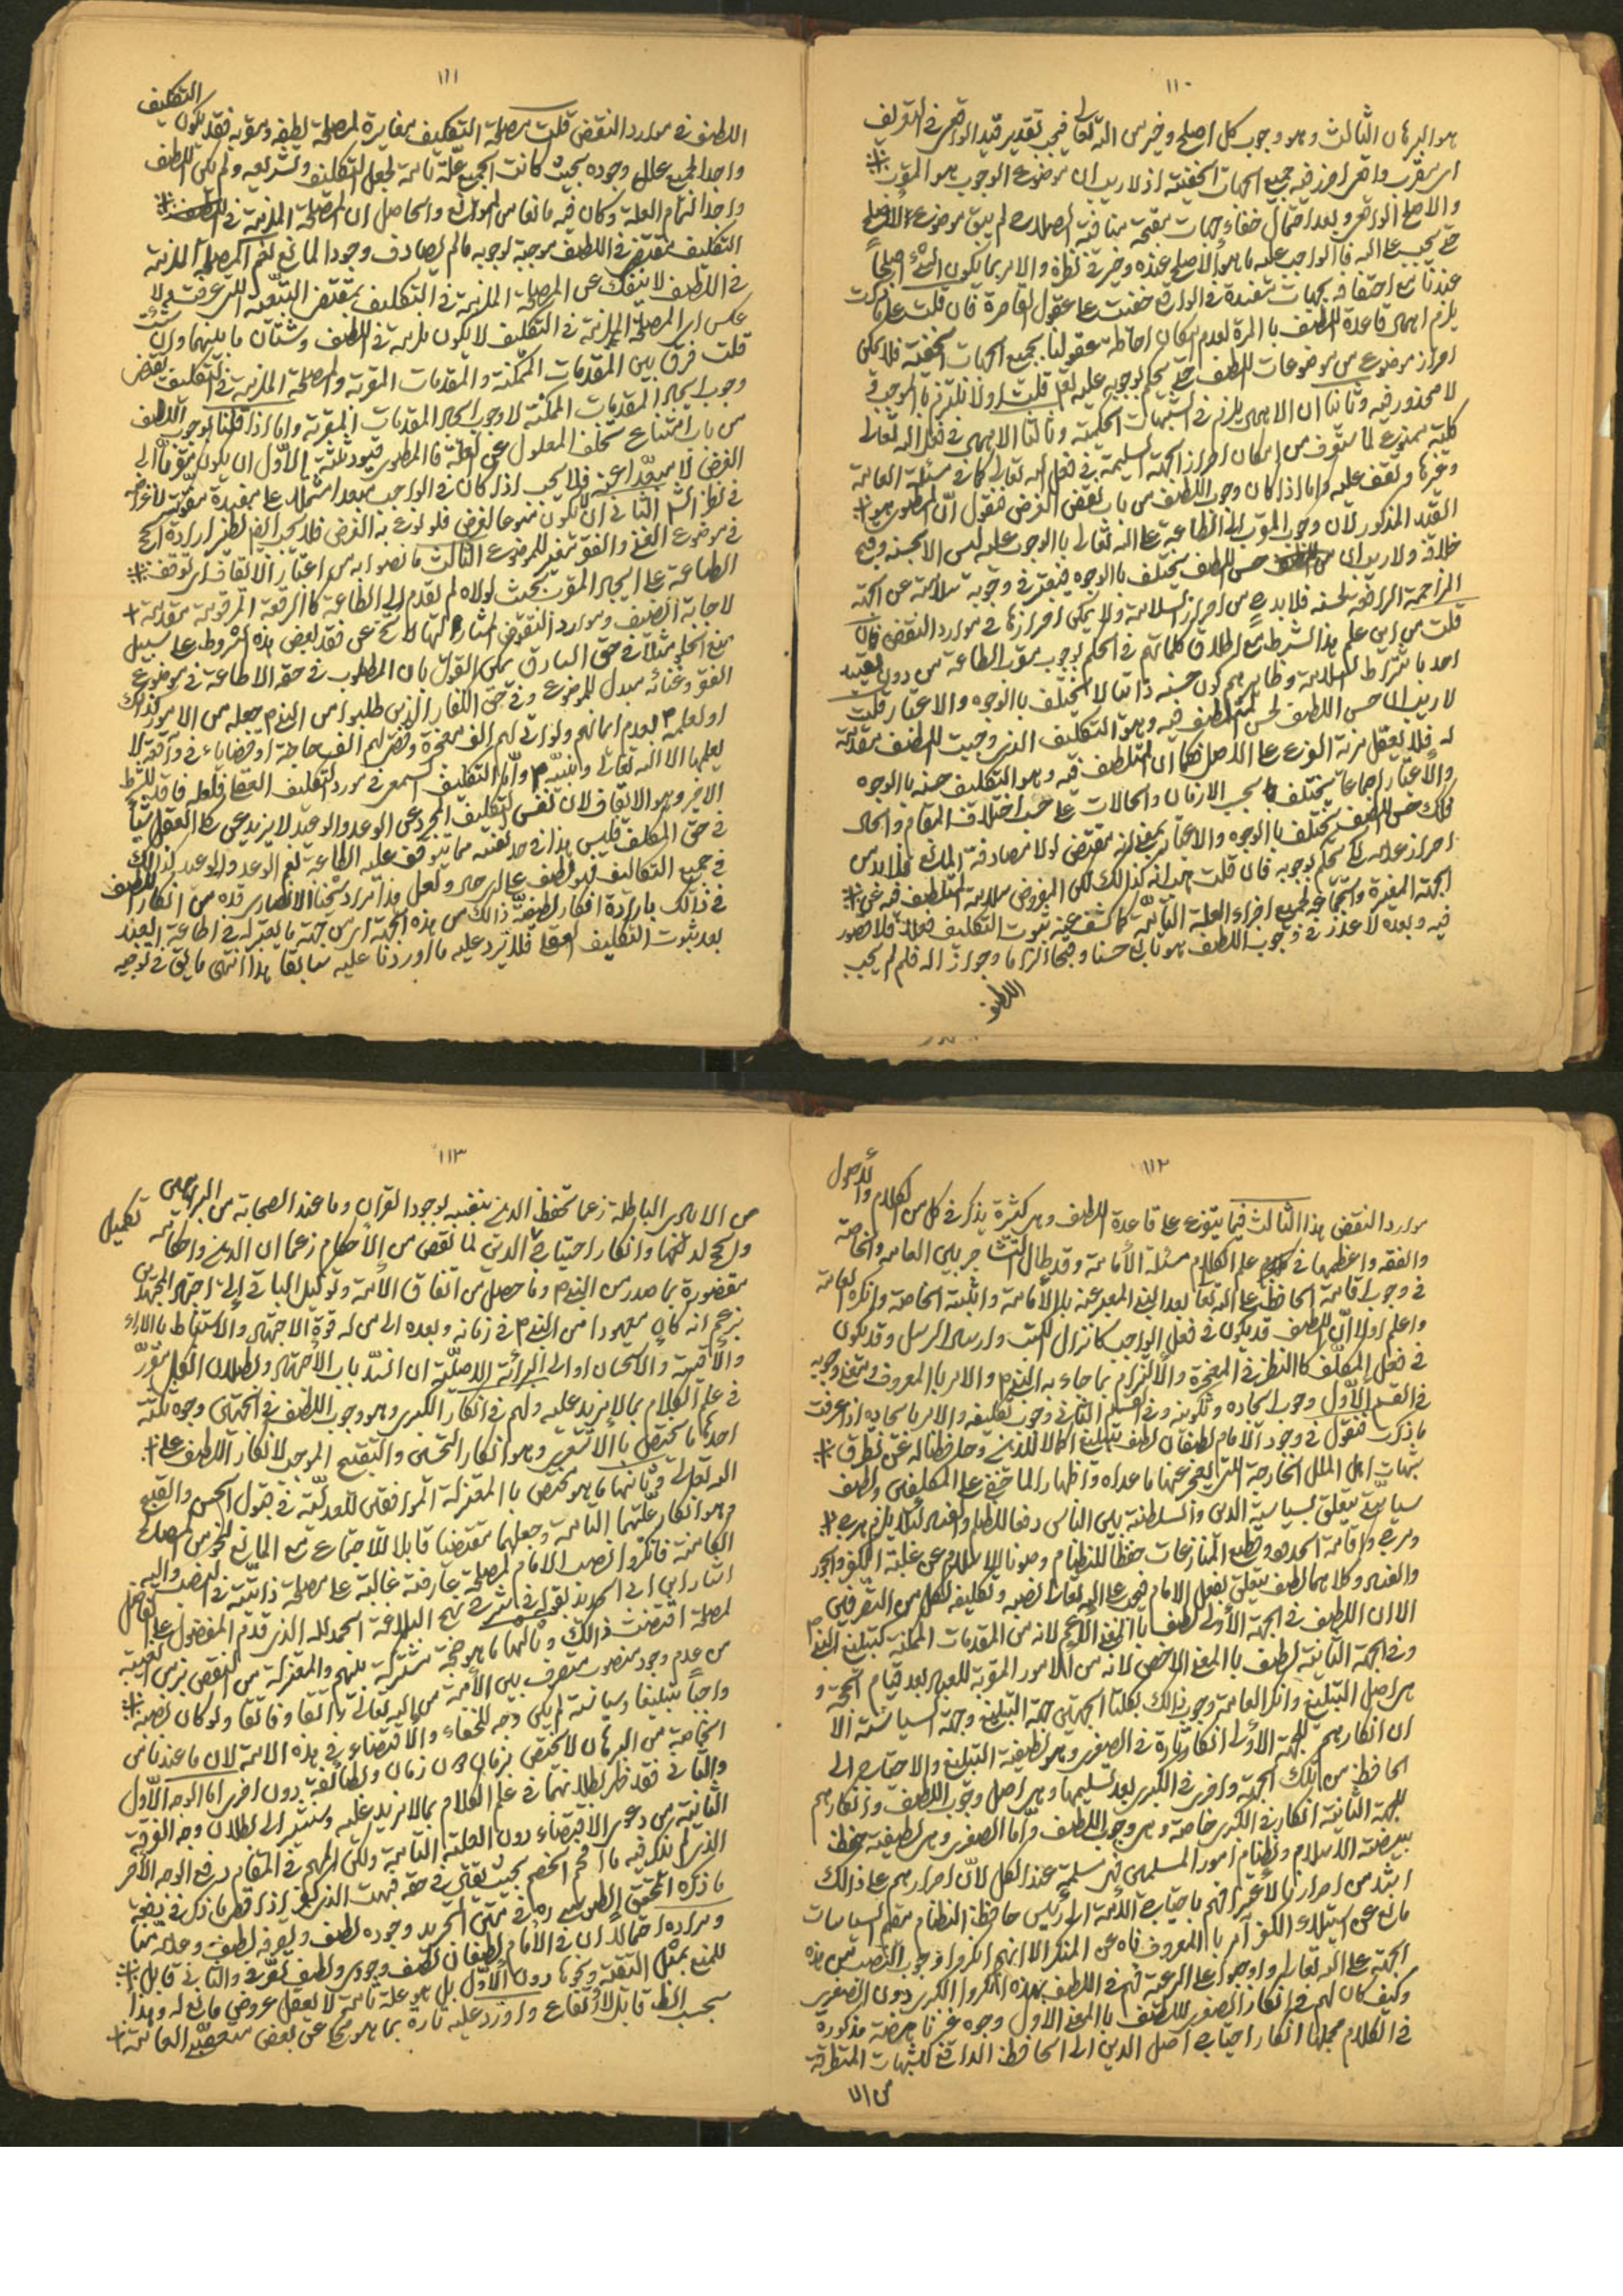 ١١٠
هو البرهان الثالث وهو وجوب كل اصلح وخير من الله تعالى فيجب تقدير قيد الواقعي في التعريف
اي مقرب واقعي احرز فيه جميع الجهات الخفية اذ لا ريب ان موضوع الوجوب هو المقرب
والاصلح الواقعي وبعد احتمال خفاء جهات مقبحة منافية لصلاح لم يبق موضوع الاصلح
حتى يجب على الله فان الواجب عليه ما هو الاصلح عنده وخير في نظره والامر ربما يكون الشيء اصلحا
عندنا مع احتفافه بجهات مفسدة في الواقع خفيت على عقول القاصرة فان قلت على ما ذكرت
يلزم اهمال قاعدة اللطف بالمرة لعدم امكان احاطة عقولنا بجميع الجهات الخفية فلا يمكن
احراز موضوع من موضوعات اللطف حتى يحكم بوجوبه عليه تعالى قلت اولا نلتزم بالموجب
لا محذور فيه وثانيا ان الاهمال يلزم في الشبهات الحكمية وثالثا الاهمال في فعل الله تعالى
كلية ممنوع لما ستعرف من امكان احراز الجهة السليمة في فعل الله تعالى كما في مسئلة العامة
وغيرها ونقف عليه واما اذا كان وجوب اللطف من باب نقض الغرض فنقول ان المطلوب هو
القيد المذكور لان وجوب المقرب الى الطاعة على الله تعالى بالوجوب عليه ليس الا لحسنه وقبح
خلافه ولا ريب ان حسن اللطف يختلف بالوجوه فيعتبر في وجوبه سلامته عن الجهة
المزاحمة الرافعة لحسنه فلا بد من احراز السلامة ولا يمكن احرازها في موارد النقض فان
قلت من اين علم هذا الشرط مع اطلاق كلماتهم في الحكم بوجوب مقرب الطاعة من دون تقييد
احد باشتراط السلامة وظاهرهم كون حسنه ذاتيا لا يختلف بالوجوه والاعتبار قلت
لا ريب ان حسن اللطف لحسن الملطف فيه وهو التكليف الذي وجبت للطف مقدمة
له فلا يعقل مزية الفرع على الاصل فكما ان الملطف فيه وهو التكليف حسنه بالوجوه
والاعتبار اجماعا يختلف بحسب الازمان والحالات على حسب اختلاف المقام والحال
كذلك حسن اللطف يختلف بالوجوه والاعتبار بمعنى انه مقتضى لولا مصادفة المانع فلا بد من
احراز عدمه حتى يحكم بوجوبه فان قلت هب انه كذلك لكن المفروض سلامة الملطف فيه عن
الجهة المغيرة واجتماعه لجميع اجزاء العلة التامة كما كشف عنه ثبوت التكليف فعلا فلا قصور
فيه وبعده لا عذر في وجوب اللطف هو تابع حسنا وقبحا الزاما وجوازا له فلم لم يجب
اللطف
١١١
اللطف في موارد النقض قلت مصلحة التكليف مغايرة لمصلحة لطفه ومقربه فقد يكون التكليف
واجدا لجميع علل وجوده بحيث كانت الجميع علة تامة لجعل التكليف وتشريعه ولم يكن اللطف
واجدا لتمام العلة وكان فيه مانعا من الموانع والحاصل ان المصلحة الملزمة في
التكليف مقتضى في اللطف موجبة لوجوبه ما لم يصادف وجود المانع نعم المصلحة الملزمة
في اللطف لا ينفك عن المصلحة الملزمة في التكليف بمقتضى التبعية التي عرفت ولا
عكس اي المصلحة الملزمة في التكليف لا يكون ملزمة في اللطف وشتان ما بينهما وان شئت
قلت فرق بين المقدمات الممكنة والمقدمات المقربة والمصلحة الملزمة في التكليف تقتضي
وجوب ايجاد المقدمات الممكنة لا وجوب ايجاد المقدمات المقربة واما اذا قلنا بوجوب اللطف
من باب امتناع تخلف المعلول عن العلة فالمطلوب قيود ثلثة الاول ان يكون مقربا الى
الغرض لا مبعدا عنه فلا يجب اذا كان في الواجب مبعدا اشتماله على مفسدة مفوتة لاغراض
في نظر الشارع الثاني ان لا يكون منوعا للغرض فلو نوع به الغرض فلا يجب ايضا نظير ارادة الحج
في موضوع الغنى والفقر مغير للموضوع الثالث ما نصوا به من اعتبار الاتفاق اي توقف
الطاعة على ايجاد المقرب بحيث لولاه لم يقدم الى الطاعة كالرقعة المرقومة مقدمة
لاجابة الضيف وموارد النقوض المشار اليها لا يخ عن فقد بعض هذه الشروط على سبيل
منع الخلو مثلا في حق السارق يمكن القول بان المطلوب في حقه الاطاعة في موضوع
الفقر وغنائه مبدل للموضوع وفي حق الكفار الذين طلبوا من النبي م جعله من الامور كذلك
او لعلمه م بعدم ايمانهم ولو اتى لهم الف معجزة وقضى لهم الف حاجة او لخفايا في واقعة لا
يعلمها الا الله تعالى ونبيه م واما التكليف السمعي في مورد التكليف العقلي فلعله فاقد للشرط
الاخير وهو الاتفاق لان نفس التكليف المجرد عن الوعد والوعيد لا يزيد عن حكم العقل شيئا
في حق المكلف فليس هذا في حد نفسه مما يتوقف عليه الطاعة نعم الوعد والوعيد كذلك
في جميع التكاليف فهو لطف على اي حال ولعل هذا مراد شيخنا الانصاري قده من انكار اللطف
في ذلك بارادة انكار لطفية ذلك من هذه الجهة اي من جهة ما يعتبر له في اطاعة العبد
بعد ثبوت التكليف العقلي فلا يرد عليه ما اوردنا عليه سابقا هذا انتهى ما يق في توجيه
١١٢
موارد النقض هذا الثالث فيما يتفرع على قاعدة اللطف وهي كثيرة يذكر في كل من الكلام والاصول
والفقه واعظمها في علم الكلام مسئلة الامامة وقد طال التشاجر بين العامة والخاصة
في وجوب اقامة الحافظ على الله تعالى بعد النبي المعبر عنه بالامامة واثبته الخاصة وانكره العامة
واعلم اولا ان اللطف قد يكون في فعل الواجب كانزال الكتب وارسال الرسل وقد يكون
في فعل المكلف كالنظر في المعجزة والالتزام بما جاء به النبي م والامر بالمعروف ومعنى وجوبه
في القسم الاول وجوب ايجاده وتكوينه وفي القسم الثاني وجوب تكليفه والامر بايجابه اذا عرفت
ما ذكرت فنقول في وجود الامام لطفان لطف بتبليغ احكام الدين وحفظها له عن تطرق
شبهات اهل الملل الخارجة التي يعجز عنها ما عداه واظهارا لما خفي على المكلفين ولطف
سياسي يتعلق بسياسة الدين والسلطنة بين الناس دفعا للظلم والفساد لئلا يلزم هرج
ومرج واقامة الحدود وقطع المنازعات حفظا للنظام وصونا للاسلام عن غلبة الكفر والجور
والفساد وكلاهما لطف يتعلق بفعل الامام فيجب على الله تعالى نصبه وتكليفه لكل من التصرفين
الا ان اللطف في الجهة الاولى لطف بالمعنى الاعم لانه من المقدمات الممكنة كتبليغ النبي م
وفي الجهة الثانية لطف بالمعنى الاخص لانه من الامور المقربة للعباد بعد قيام الحجة و
هي اصل التبليغ وانكر العامة وجوب ذلك بكلتا الجهتين جهة التبليغ وجهة السياسة الا
ان انكارهم للجهة الاولى انكار تارة في الصغرى وهو لطفية التبليغ والاحتياج الى
الحافظ من تلك الجهة واخرى في الكبرى بعد تسليمها وهي اصل وجوب اللطف وانكارهم
للجهة الثانية انكار في الكبرى خاصة وهي وجوب اللطف واما الصغرى وهي لطفية حفظ
بيضة الاسلام ونظام امور المسلمين فهي مسلمة عند الكل لان اصرارهم على ذلك
اشد من اصرارنا لاعترافهم باحتياج الامة الى رئيس حافظ النظام مقيم السياسات
مانع عن استيلاء الكفر آمر بالمعروف ناه عن المنكر الا انهم انكروا وجوب النصب من هذه
الجهة على الله تعالى واوجبوا على الرعية فهم في اللطف بهذه انكروا الكبرى دون الصغرى
وكيف كان لهم في انكار الصغرى للطف بالمعنى الاول وجوه غير ناهضة مذكورة
في الكلام مجملها انكار احتياج اصل الدين الى الحافظ الدافع للشبهات المتطرقة
من اه
١١٣
من الايادي الباطلة زعما تحفظ الدين بنفسه لوجود القران وما عند الصحابة من البراهين
والحجج لدفعها وانكار احتياج الدين لما نقص من الاحكام زعما ان الدين واحكامه تكميل
مقصورة بما صدر من النبي م وما حصل من اتفاق الامة وتوكيل الباقي الى اجتهاد المجتهدين
بزعم انه كان معهودا من النبي م في زمانه وبعده الى من له قوة الاجتهاد والاستنباط بالاراء
والاقيسة والاستحسان او الى البرائة الاصلية ان انسد باب الاجتهاد وبطلان الكل مقرر
في علم الكلام بما لا مزيد عليه ولهم في انكار الكبرى وهو وجوب اللطف في الجهتين وجوه ثلثة
احدها ما يختص بالاشعري وهو انكار التحسين والتقبيح الموجب لانكار اللطف على
الله تعالى وثانيها ما هو مختص بالمعتزلة الموافقين للعدلية في قبول الحسن والقبح
وهو انكار عليتهما التامة وجعلهما مقتضيا قابلا للاجتماع مع المانع نحو من المصلحة
الكامنة فانكروا نصب الامام لمصلحة عارضة غالبة على مصلحة ذاتية في النصب واليه
اشار ابن ابي الحديد بقوله في شرح نهج البلاغة الحمد لله الذي قدم المفضول على الفاضل
لمصلحة اقتضت ذلك وثالثها ما هو حجة مشتركة بينهم والمعتزلة من النقض بزمن الغيبة
من عدم وجود منصوب متصرف بين الامة من الله تعالى اتفاقا وفاقا ولو كان نصبه
واجبا تبليغا وسياسة لم يكن وجه للخفاء والاقتضاء في هذه الامة لان ما عندنا من
الخاصة من البرهان لا يختص بزمان دون زمان ولطائفة دون اخرى اما الوجه الاول
والثاني فقد ظهر بطلانهما في علم الكلام بما لا مزيد عليه وستشير الى بطلان وجه الفرقة
الثانية من دعوى الاقتضاء دون العلية التامة ولكن المهم في المقام دفع الوجه الاخر
الذي لم نذكر فيه ما افحم الخصم بحيث
ما ذكره المحقق الطوسي ره في متن التجريد وجوده لطف وتصرفه لطف وعدمه منا
ومراده احتمالا ان في الامام لطفان لطف وجودي ولطف تصرفي والثاني قابل
للمنع بمثل التقية ونحوها دون الاول بل هو علة تامة لا يعقل عروض مانع له وهذا
بحسب الظ قابل لارتفاع واورد عليه تارة بما هو محكي عن بعض متعصبي العامة